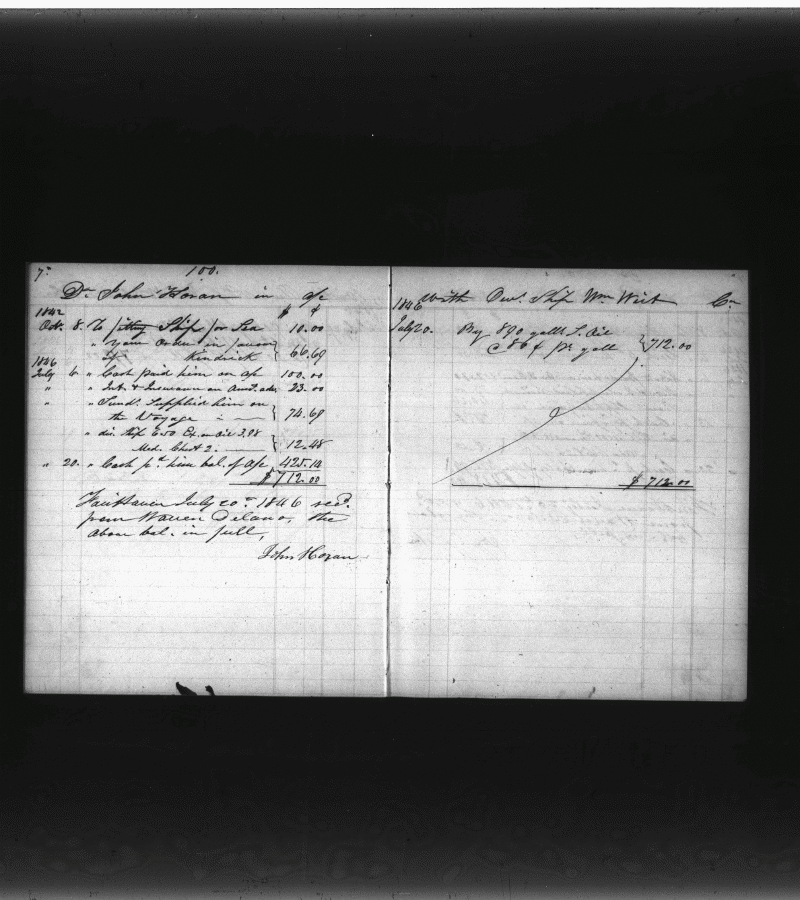 7
100.
Dr John Horan in a/c
$ ¢
1842
Oct. 8. To fitting Ship for Sea 10.00
" your order in favour
of Kendrick } 66.69
1846
July 6 " Cash paid him on a/c 100.00
" " Int. & Insurance on Amt. adv. 23.00
" " Sund. Supplied him on
the Voyage } 74.69
" dis. Ship 6.50 Ex. on Oil 3.98
Med. Chest 2. } 12.48
" 20. " Cash pd. him bal. of a/c 425.14
$ 712.00
FairHaven July 20th 1846 recd.
from Warren Delano, the
above bal. in full,
John Horan
with Ow. Ship Wm Wirt Cr
1846
July 20. By 890 galls S. Oil
@ 80 ¢ pr gall } 712.00
$ 712.00